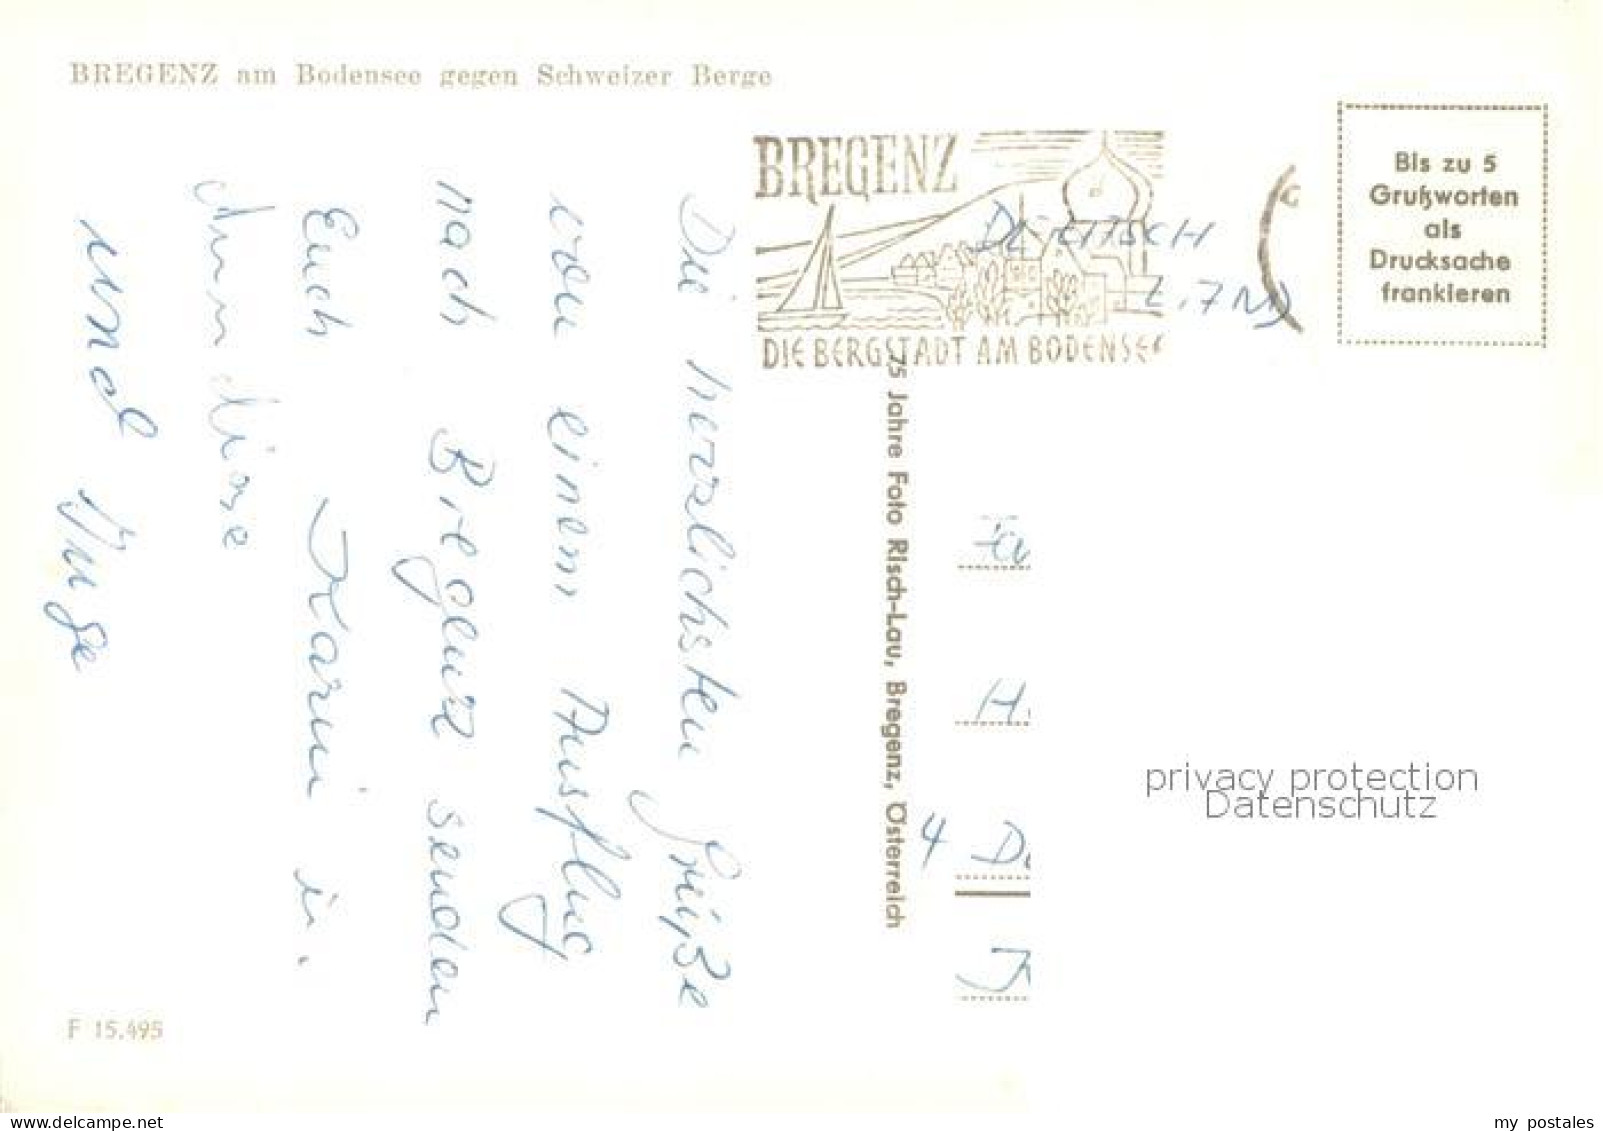 BREGENZ am Bodensee gegen Schweizer Berge
BREGENZ
DIE BERGSTADT AM BODENSEE
Bis zu 5
Grußworten
als
Drucksache
frankieren
Die herzlichsten Grüße
von einem Ausflug
nach Bregenz senden
Euch Karin u.
und Inge
75 Jahre Foto Risch-Lau, Bregenz, Österreich
H.
4 D
privacy protection
Datenschutz
F 15.495
my postales